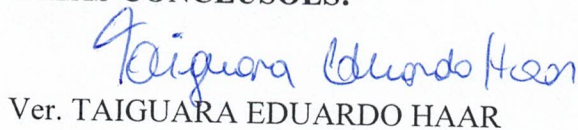 CONCLUSÕES:
Taiguara Eduardo Haar
Ver. TAIGUARA EDUARDO HAAR